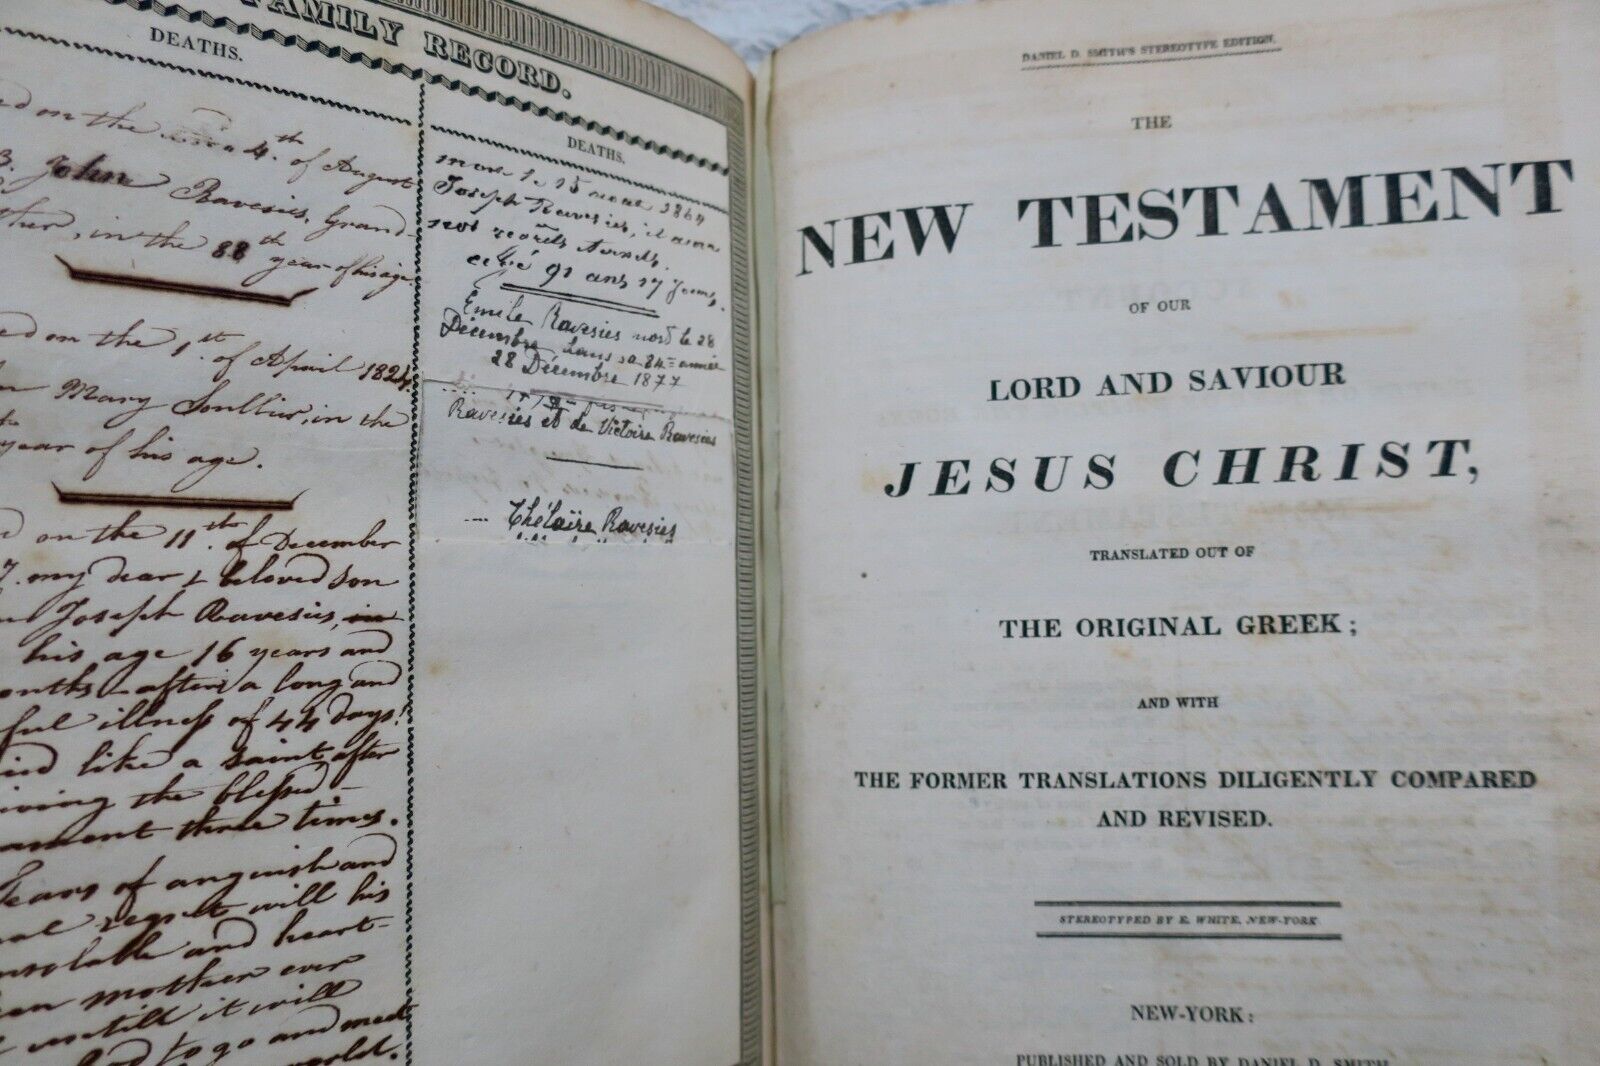 FAMILY RECORD.
DEATHS.
on the 4th of August
John Ravesies, Grand-
in the 88th year of his age
on the 1st of April 1824
Mary Soullier, in the
year of his age.
on the 11th of December
7. my dear & beloved son
Joseph Ravesies, in
his age 16 years and
onths after a long and
ful illness of 44 days!
ied like a saint after
iving the blessed
ament three times.
Tears of anguish and
al regret will his
nsolable and heart-
en mother ever
untill it will
to go and meet
world.
DEATHS.
mort le 15 1864
Joseph Ravesies, il
nos regrets
âgé 91 ans 17 jours.
Emile Ravesies mort le 28
Décembre dans sa 84me année
28 Décembre 1877
Ravesies et de Victoire Ravesies
Thélaïre Ravesies
DANIEL D. SMITH'S STEREOTYPE EDITION.
THE
NEW TESTAMENT
OF OUR
LORD AND SAVIOUR
JESUS CHRIST,
TRANSLATED OUT OF
THE ORIGINAL GREEK;
AND WITH
THE FORMER TRANSLATIONS DILIGENTLY COMPARED
AND REVISED.
STEREOTYPED BY E. WHITE, NEW-YORK
NEW-YORK:
PUBLISHED AND SOLD BY DANIEL D. SMITH